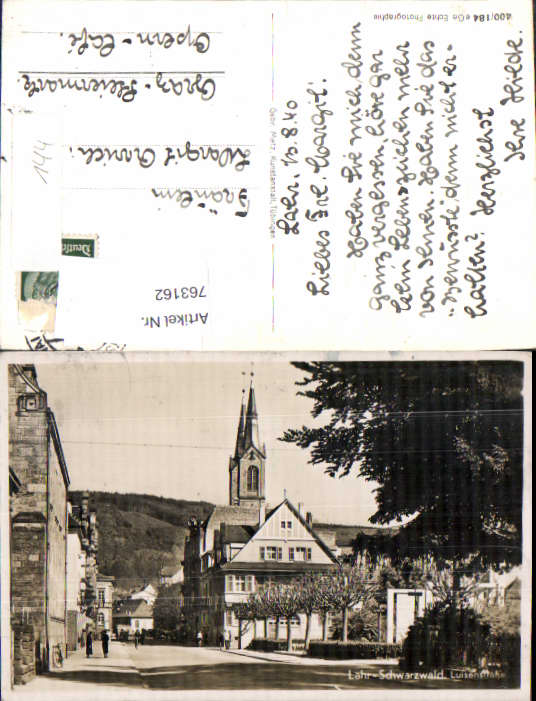 400/184 e Ge Echte Photographie
Gebr. Metz, Kunstanstalt, Tübingen
Lahr, 10.8.40
Liebes Frl. Margit!
Haben Sie mich denn
ganz vergessen, höre gar
kein Lebenszeichen mehr
von Ihnen. Haben Sie das
"Bewusste" denn nicht er-
halten? Herzlichst
Ihre Hilde.
Fräulein
Margit
Graz - Steiermark
Opern - Café.
144
Deutsch
Artikel Nr.
763162
Lahr-Schwarzwald. Luisenstraße